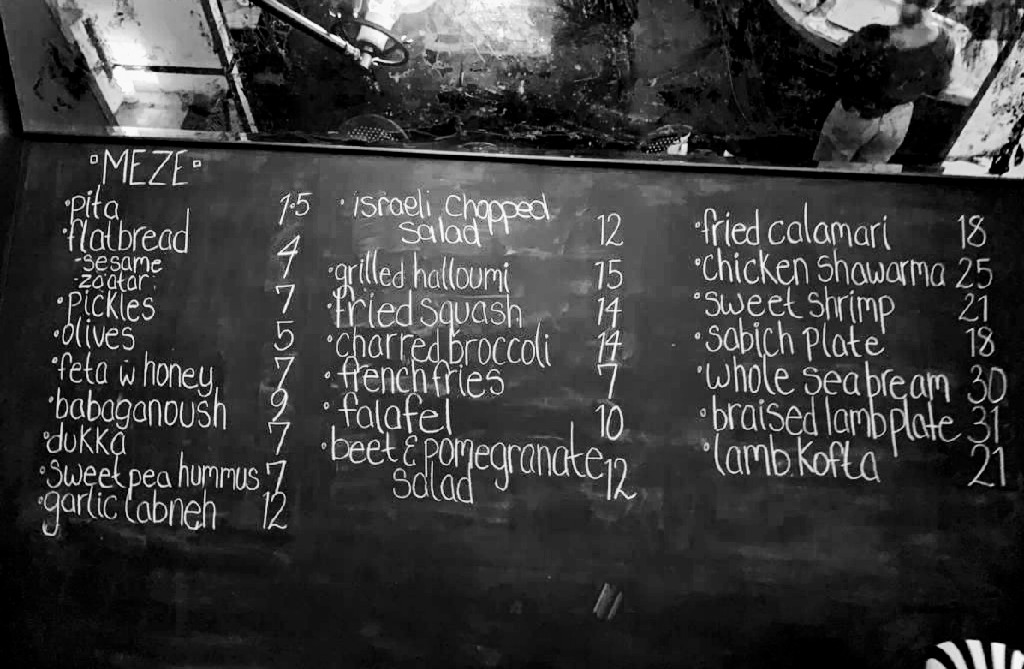 ▫MEZE▫
·pita 1.5
·flatbread 4
-sesame
-za'atar
·pickles 7
·olives 5
·feta w honey 7
·babaganoush 9
·dukka 7
·sweet pea hummus 7
·garlic labneh 12
·israeli chopped
salad 12
·grilled halloumi 15
·fried squash 14
·charred broccoli 14
·french fries 7
·falafel 10
·beet & pomegranate
salad 12
·fried calamari 18
·chicken shawarma 25
·sweet shrimp 21
·sabich plate 18
·whole sea bream 30
·braised lamb plate 31
·lamb kofta 21